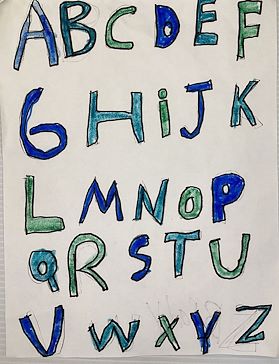 A B C D E F
G H i J K
L M N O P
Q R S T U
V W X Y Z